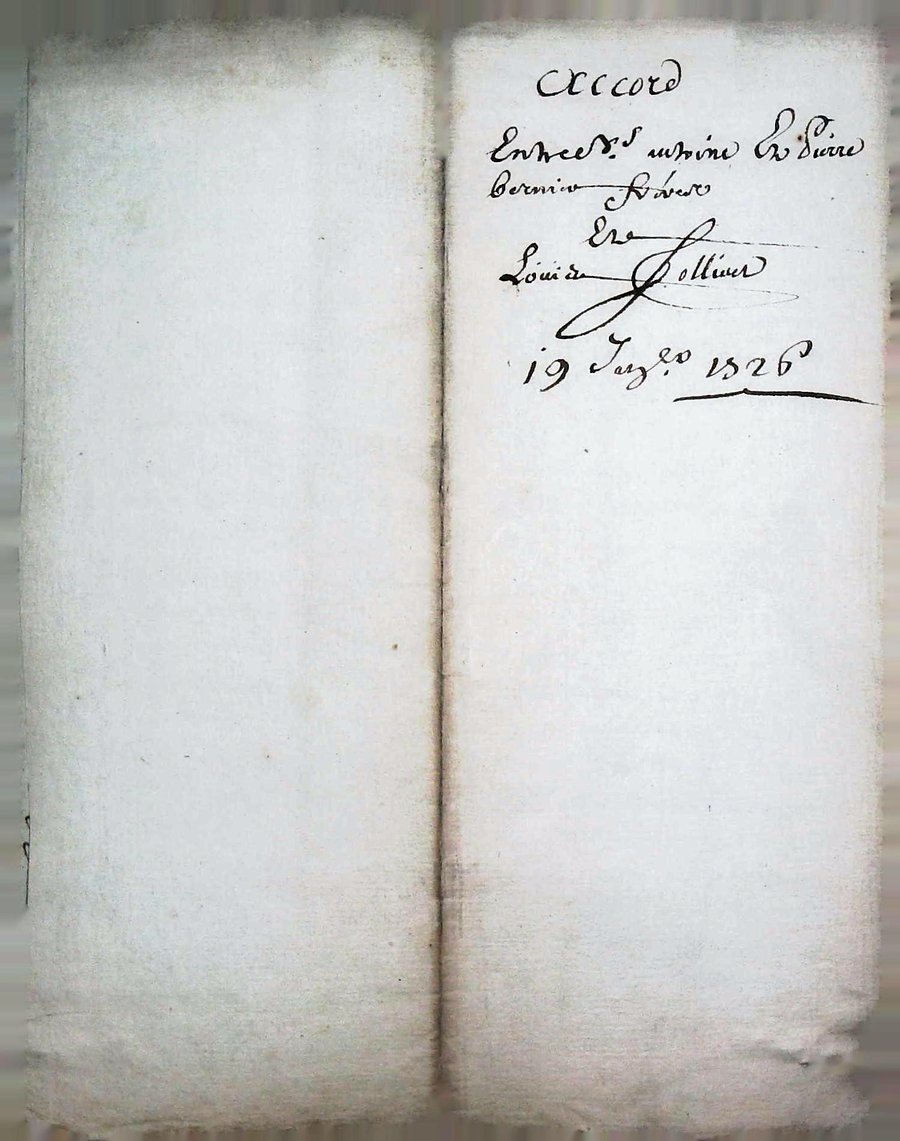 Accord
Entre Srs antoine Et Pierre
bernier freres
Et
Louis Jollivet
19 Janv.er 1826